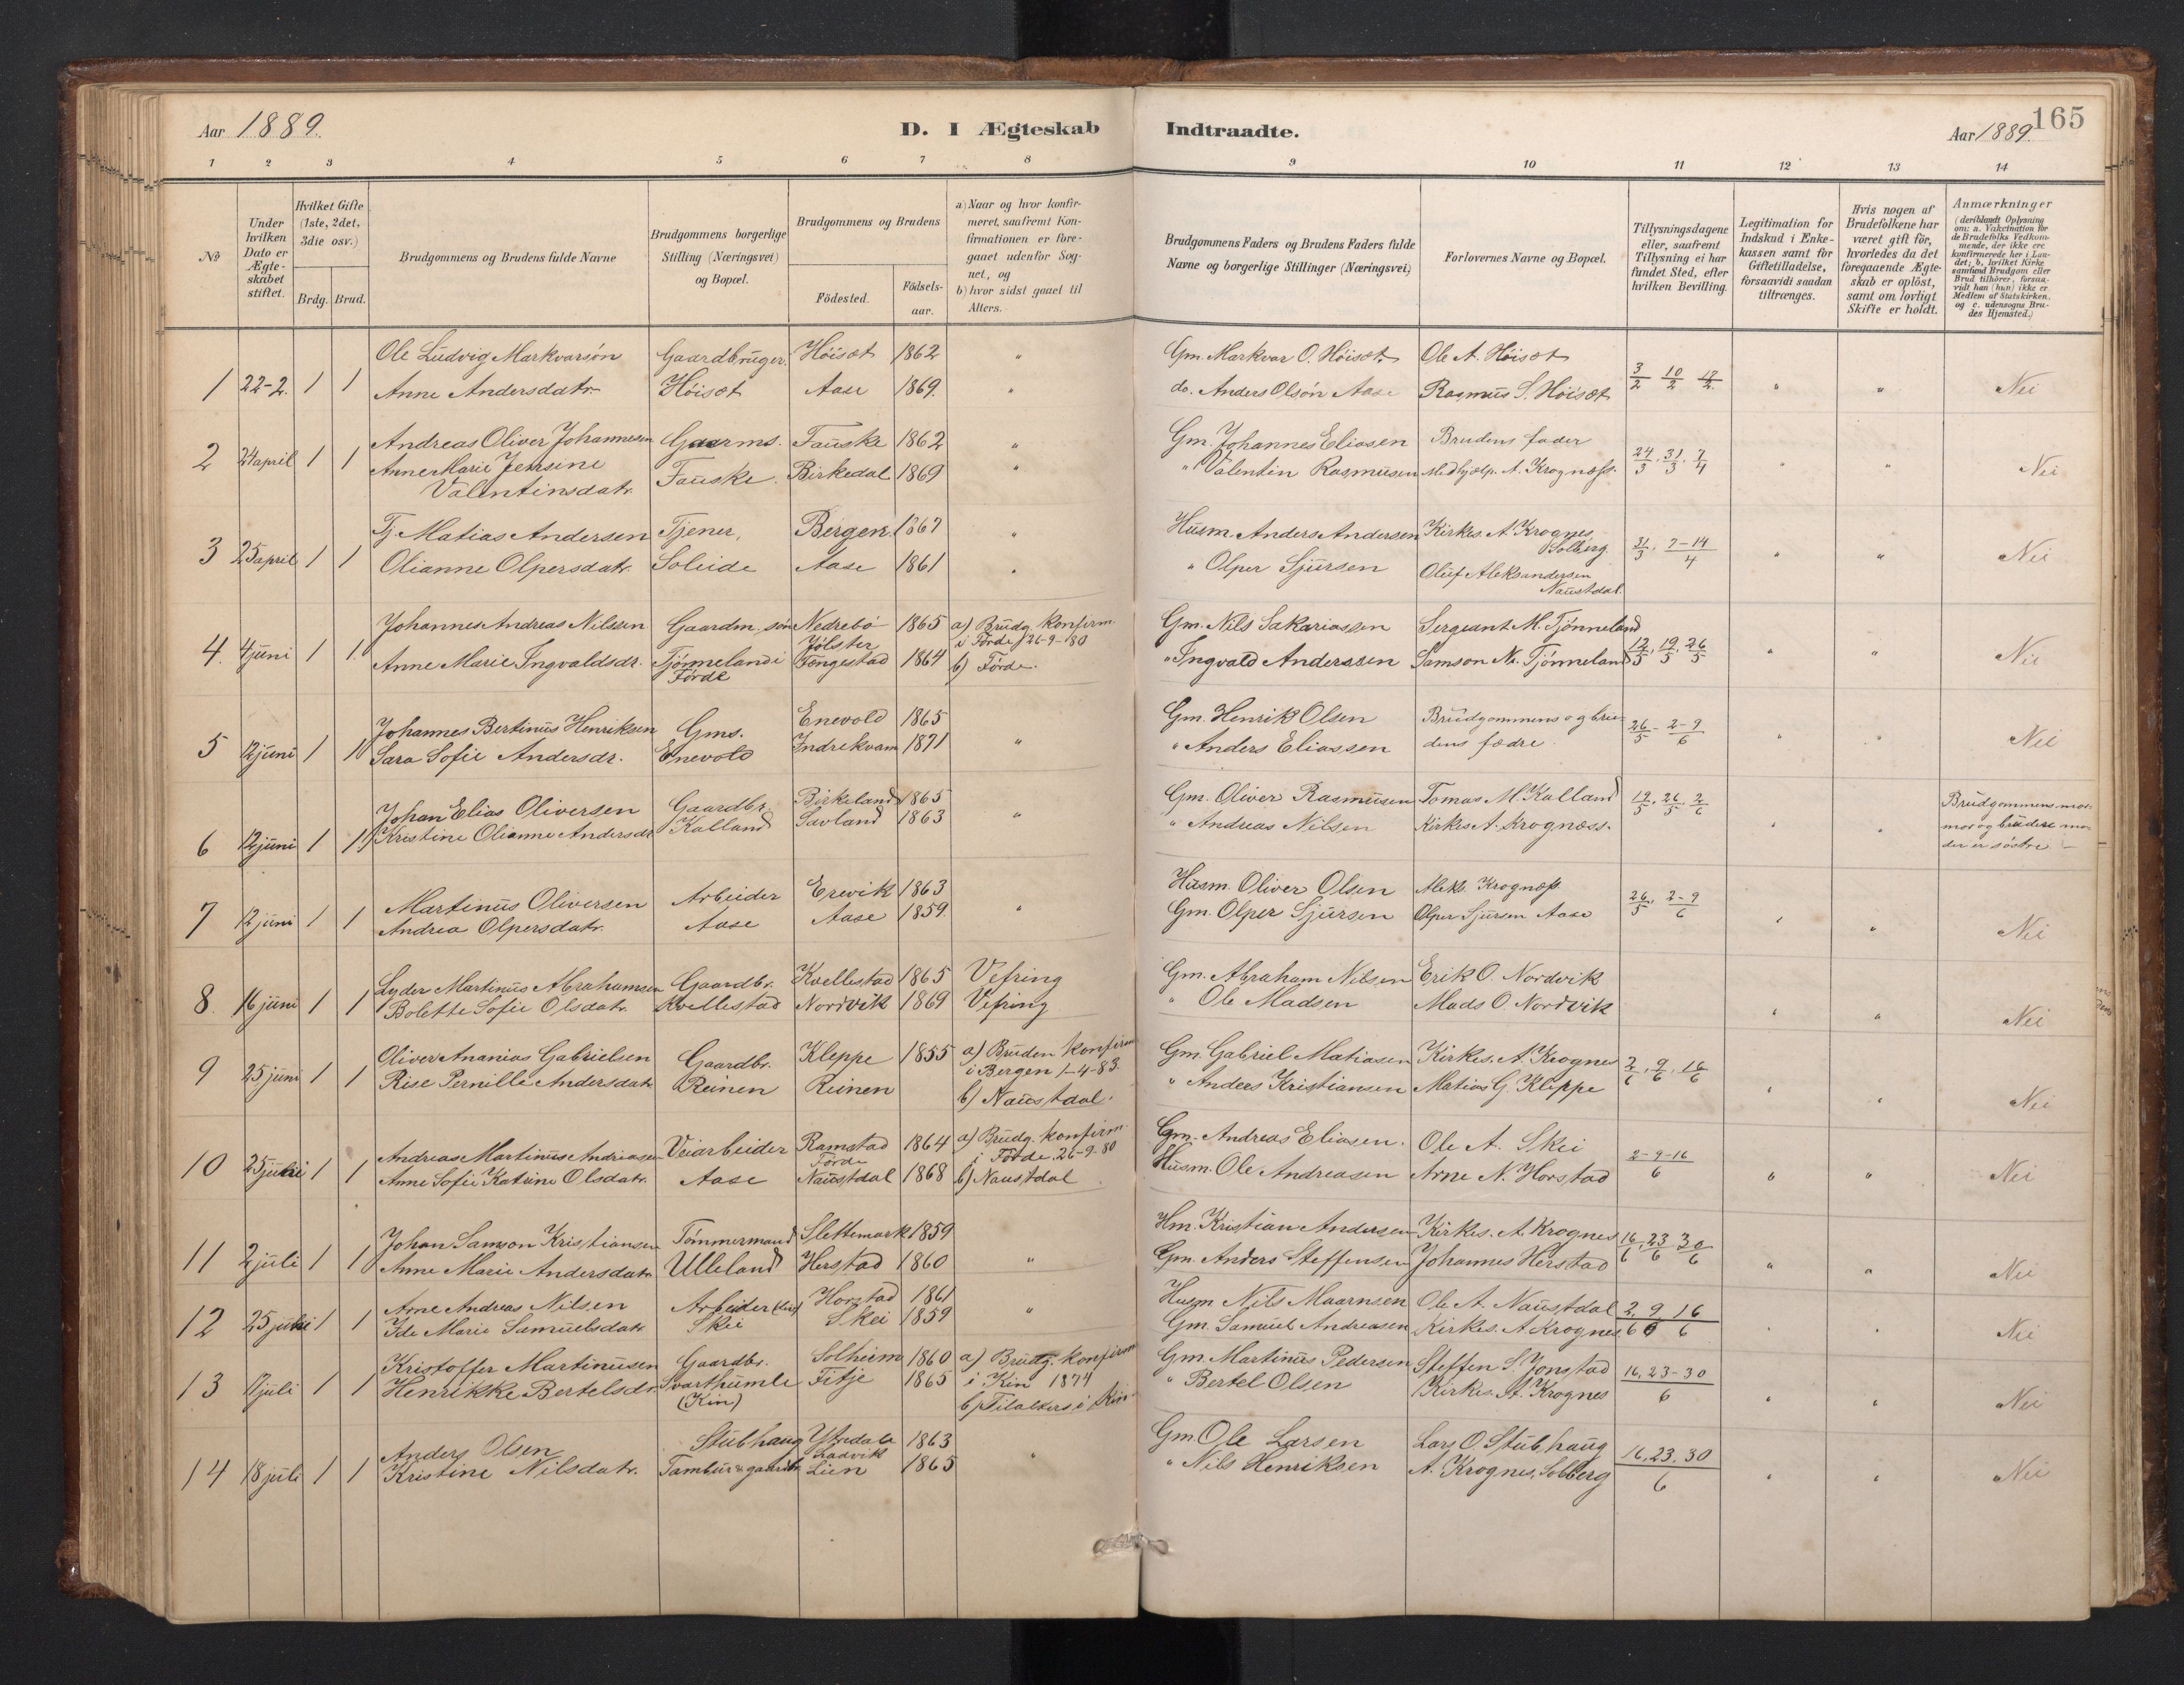 Aar 1889.
D. I Ægteskab
Indtraadte.
Aar 1889.
165
1 2 3 4 5 6 7 8 9 10 11 12 13 14
No
Under hvilken Dato er Ægteskabet stiftet.
Hvilket Gifte (1ste, 2det, 3die osv.)
Brdg. Brud.
Brudgommens og Brudens fulde Navne
Brudgommens borgerlige Stilling (Næringsvei) og Bopæl.
Brudgommens og Brudens
Födested.
Födselsaar.
a) Naar og hvor konfirmeret, saafremt Konfirmationen er foregaaet udenfor Sognet, og
b) hvor sidst gaaet til Alters.
Brudgommens Faders og Brudens Faders fulde Navne og borgerlige Stillinger (Næringsvei)
Forlovernes Navne og Bopæl.
Tillysningsdagene eller, saafremt Tillysning ei har fundet Sted, efter hvilken Bevilling.
Legitimation for Indskud i Enkekassen samt for Giftetilladelse, forsaavidt saadan tiltrænges.
Hvis nogen af Brudefolkene har været gift för, hvorledes da det foregaaende Ægteskab er oplöst, samt om lovligt Skifte er holdt.
Anmærkninger
(deriblandt Oplysning om: a. Vakcination för de Brudefolks Vedkommende, der ikke ere konfirmerede her i Landet; b. hvilket Kirkesamfund Brudgom eller Brud tilhörer, forsaavidt han (hun) ikke er Medlem af Statskirken, og c. udensogns Brudes Hjemsted.)
Ole Ludvig Markvarsön Gaardbruger. Höiset 1862 " Gm. Markvar O. Höiset Ole A. Höiset
1 22-2. 1 1 Anne Andersdatr. Höiset Aase 1869. " do. Anders Olsön Aase Rasmus S. Höiset 3/2 10/2 " " Nei
Andreas Oliver Johannesen Gaarms. Fauske 1862 " Gm. Johannes Eliasen Brudens fader
2 24 april 1 1 Anne Marie Jensine Valentinsdatr. Fauske. Birkedal 1869 " " Valentin Rasmusen Medhjælp. A. Krognæss. 24/3. 31/3. 7/4 " " Nei
Tj. Matias Andersen Tjener, Bergen 1867 " Husm. Anders Andersen Kirkes. A. Krognes, Solberg.
3 25 april 1 1 Olianne Olpersdatr. Soleide Aase 1861 " " Olper Sjursen Oluf Aleksandersen Naustdal. 31/3. 7-14/4 " " Nei
Johannes Andreas Nilsen Gaardm. sön Nedrebö Jölster 1865 a) Brudg. konfirm. i Förde 26-9-80 Gm. Nils Sakariassen Sergeant M. Tjönneland
4. 4 juni 1 1. Anne Marie Ingvaldsdr. Tjönneland i Förde Fengestad 1864 b) Förde. " Ingvald Anderssen Samson N. Tjönneland 12/5. 19/5. 26/5 " " Nei
Johannes Bertinus Henriksen Gms. Enevold 1865 Gm. Henrik Olsen Brudgommens og bru-
5 12 juni 1 1 Sara Sofie Andersdr. Enevold Indrekvam 1871 " " Anders Eliassen dens fædre. 26/5 - 2-9/6 " " Nei
Johan Elias Oliversen Gaardbr. Birkeland 1865 Gm. Oliver Rasmusen Tomas M. Kalland 19/5. 26/5. 2/6 Brudgommens mor-
6 12 juni 1 1 Kristine Olianne Andersdr. Kalland Savland 1863 " " Andreas Nilsen Kirkes A. Krognæss. " " mor og brudens mo-
der er söstre
Martinus Oliversen Arbeider Erevik 1863 Husm. Oliver Olsen Aleks. Krognæss
7 12 juni 1 1 Andrea Olpersdatr. Aase Aase 1859 " Gm. Olper Sjursen Olper Sjursen Aase 26/5. 2-9/6 " " Nei
Lyder Martinus Abrahamsen Gaardbr. Kvellestad 1865 Vefring Gm. Abraham Nilsen Erik O. Nordvik
8. 16 juni 1 1 Bolette Sofie Olsdatr. Kvellestad Nordvik 1869 Vefring " Ole Madsen Mads O. Nordvik " " Nei
Oliver Ananias Gabrielsen Gaardbr. Kleppe 1855 a) Bruden konfirm i Bergen 1-4-83. Gm. Gabriel Matiasen Kirkes. A. Krognes
9 25 juni 1 1 Rise Pernille Andersdatr Reinen Reinen b) Naustdal. " Anders Kristiansen Matias G. Kleppe 2/6. 9/6. 16/6 " " Nei
Andreas Martinus Andreasen Veiarbeider Ramstad Förde 1864 a) Brudg. konfirm. i Förde 26-9-80 Gm. Andreas Eliasen. Ole A. Skei
10 25 juni 1 1 Anne Sofie Katrine Olsdatr. Aase Naustdal 1868 b) Naustdal Husm. Ole Andreasen Arne N. Horstad 2-9-16/6 " " Nei
Johan Samson Kristiansen Tömmermand Slettemark 1859 Hm. Kristian Andersen Kirkes. A. Krognes
11 2 juli 1 1 Anne Marie Andersdatr Ulleland Herstad 1860 " Gm. Anders Steffensen Johannes Herstad 16/6. 23/6 30/6 " " Nei
Arne Andreas Nilsen Arbeider Horstad 1861 " Husm Nils Maarnsen Ole A. Naustdal
12 25 juni 1 1 Ide Marie Samuelsdatr Skei Skei 1859 Gm. Samuel Andreasen Kirkes. A Krognes 2/6 9/6 16/6 " " Nei
Kristoffer Martinusen Gaardbr. Solheim 1860 a) Brudg. konfirm i Kin 1874 Gm. Martinus Pedersen Steffen S. Jonstad
13 juli 1 1 Henrikke Bertelsdr. Svarthumle (Kin) Fitje 1865 b) Tilalters i Kin " Bertel Olsen Kirkes. A. Krognes 16, 23-30/6 " " Nei
Anders Olsen Stubhaug Ytredale Ladvik 1863 Gm Ole Larsen Lars O. Stubhaug
14 18 juli 1 1 Kristine Nilsdatr. Tambur & gaardbr Lien 1865 " " Nils Henriksen A. Krognes, Solberg 16, 23. 30/6 " " Nei